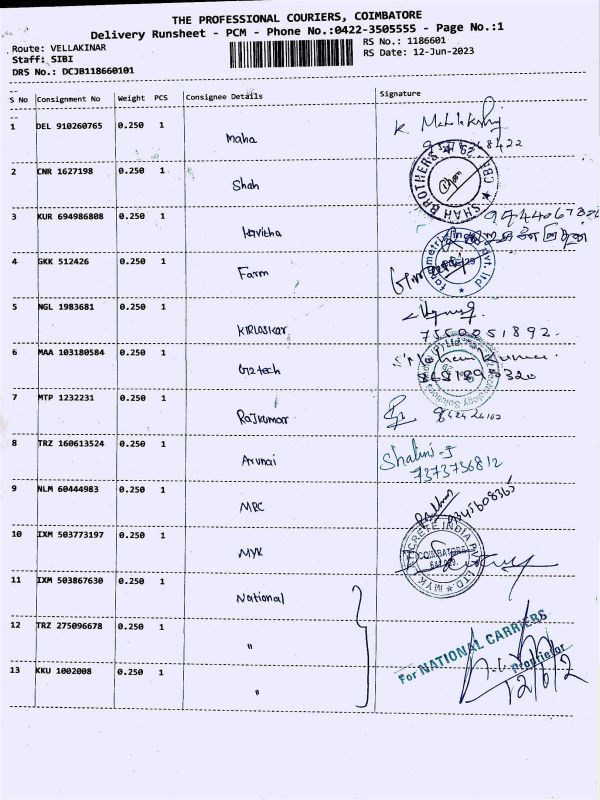 THE PROFESSIONAL COURIERS, COIMBATORE
Delivery Runsheet - PCM - Phone No.:0422-3505555 - Page No.:1
Route: VELLAKINAR
RS No.: 1186601
Staff: SIBI
RS Date: 12-Jun-2023
DRS No.: DCJB118660101
S No Consignment No Weight PCS Consignee Details Signature
1 DEL 910260765 0.250 1 Maha
2 CNR 1627198 0.250 1 Shah
SHAH BROTHERS
3 KUR 694986808 0.250 1 Kavitha
4 GKK 512426 0.250 1 Farm
5 NGL 1983681 0.250 1 KIRLOSKAR
7550051892.
6 MAA 103180584 0.250 1 G2tech
7 MTP 1232231 0.250 1 RajKumar
8 TRZ 160613524 0.250 1 Arunai Shalini-J
7373736812
9 NLM 60444983 0.250 1 MRC 9345608365
10 IXM 503773197 0.250 1 MYK
COIMBATORE
11 IXM 503867630 0.250 1 National
12 TRZ 275096678 0.250 1 "
For NATIONAL CARRIERS
Proprietor
13 KKU 1002008 0.250 1 "
12/6/2